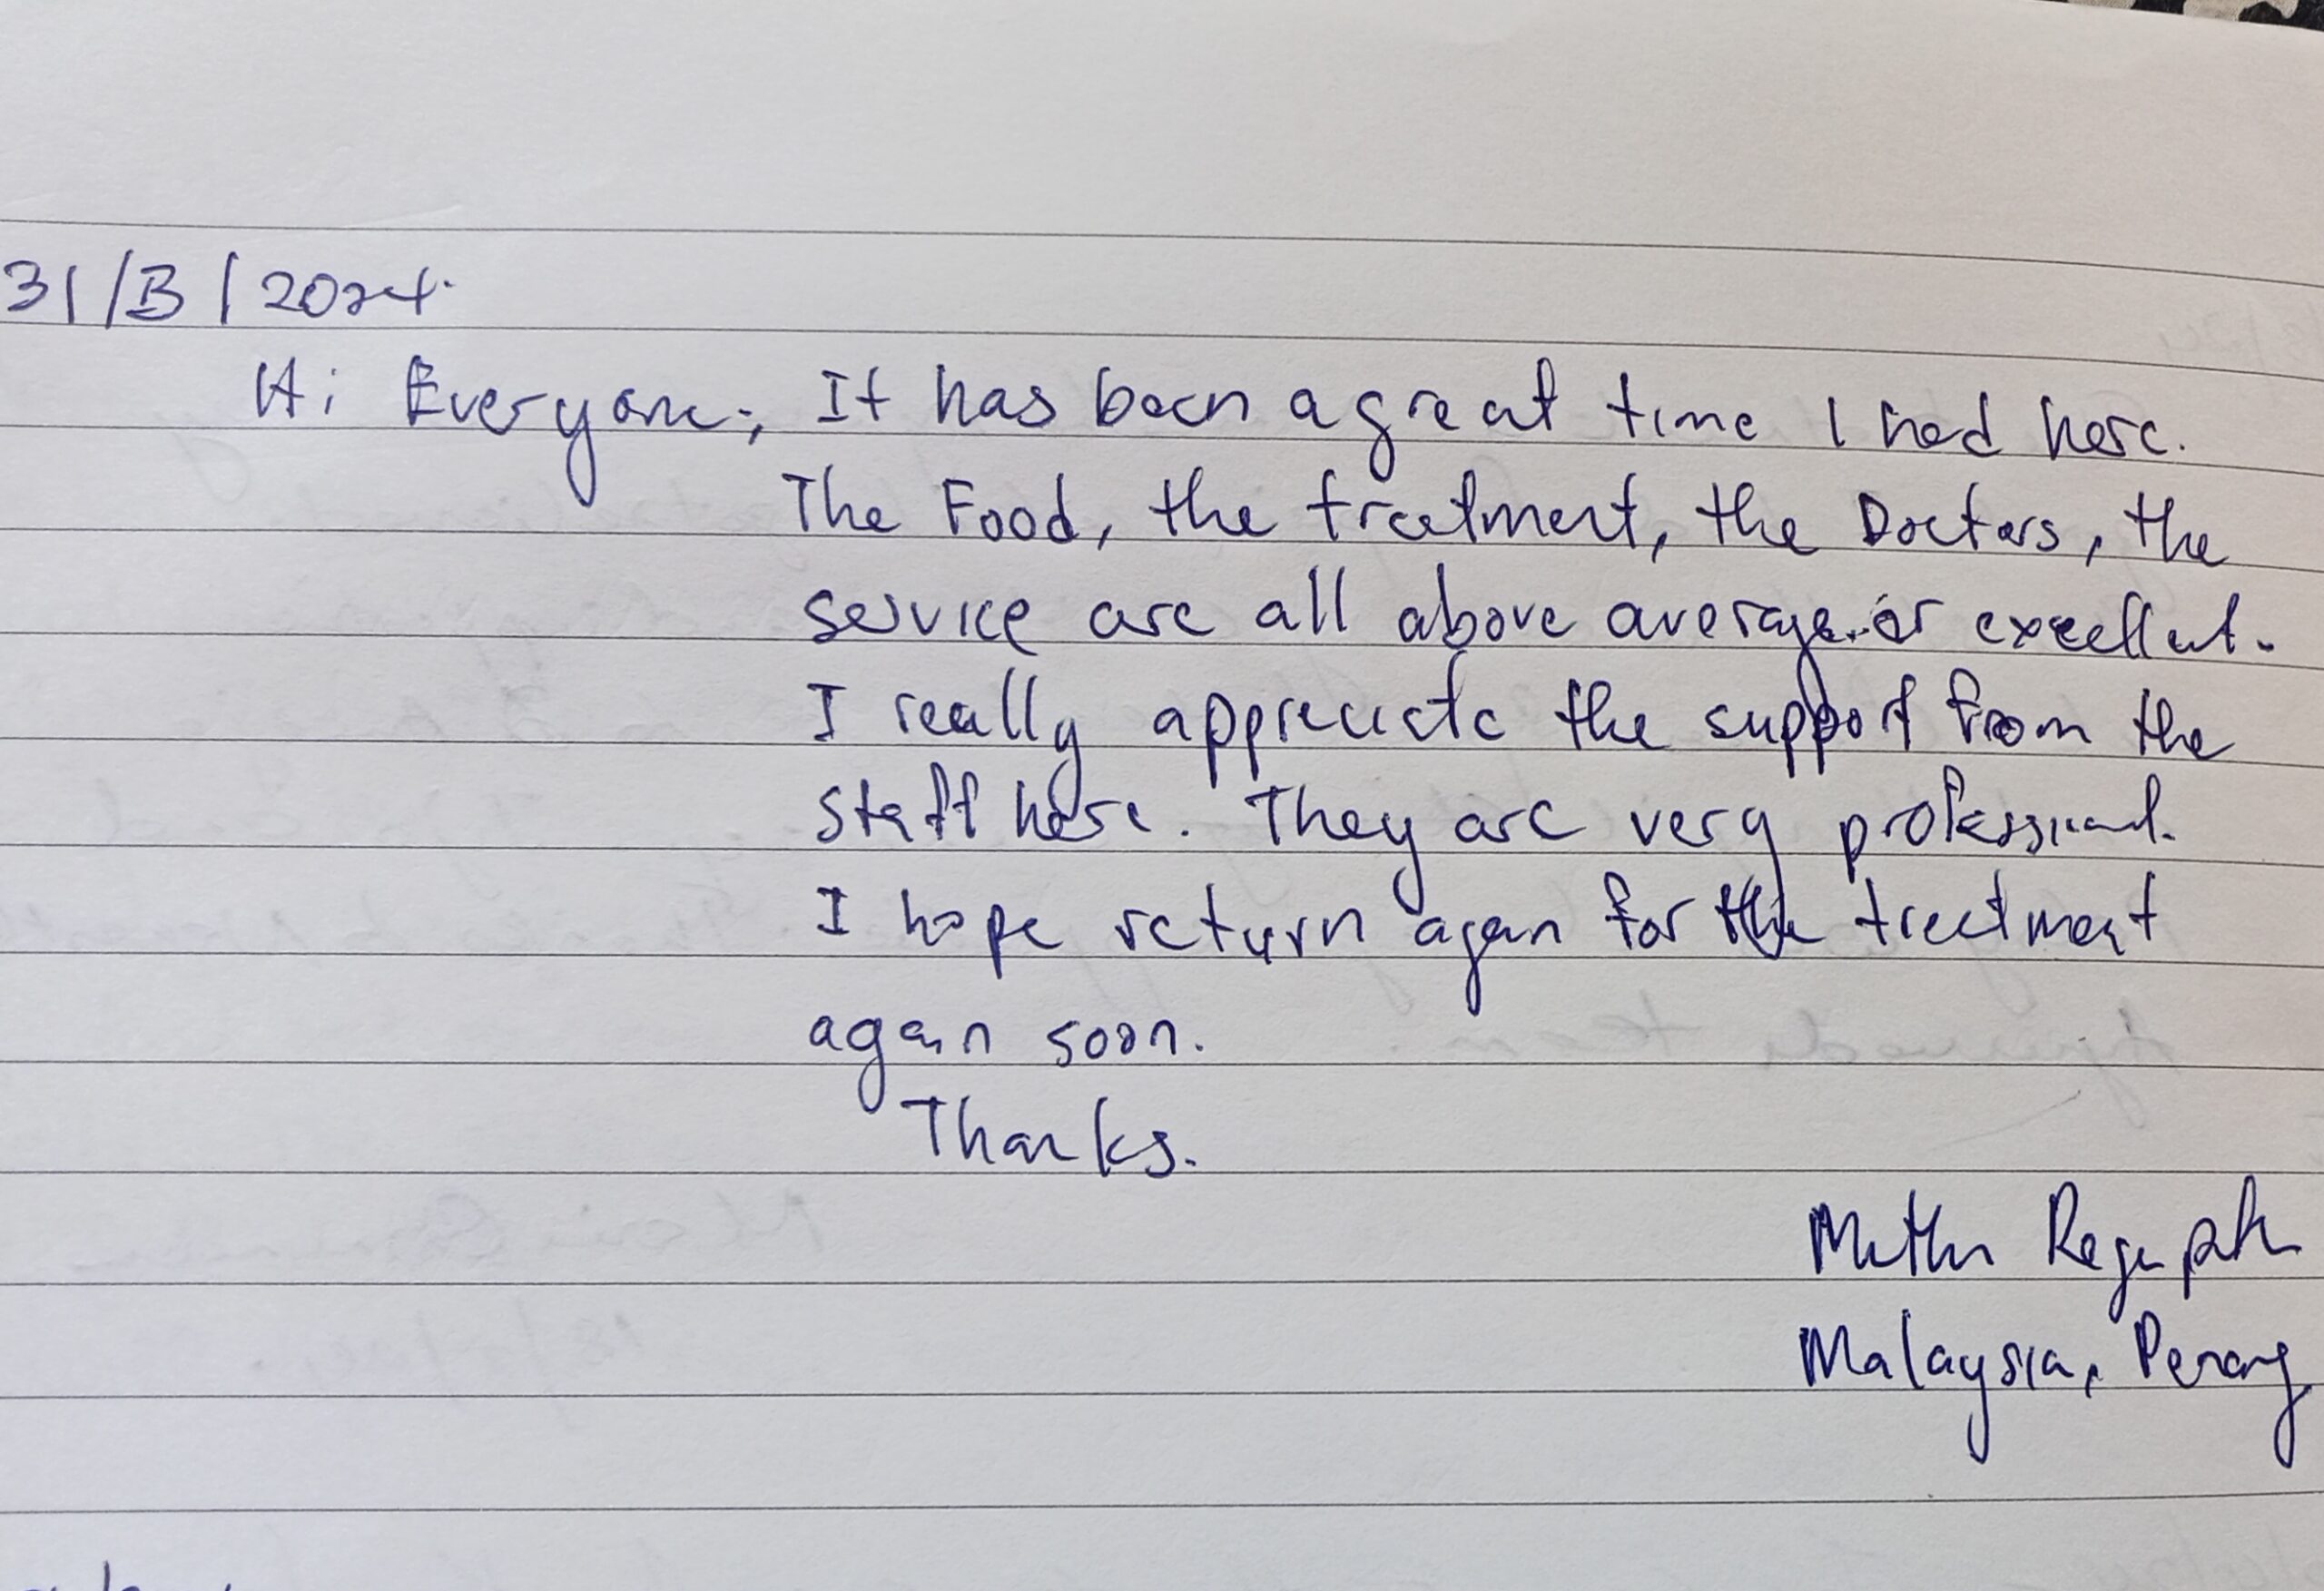 31/3/2024.
Hi Everyone; It has been a great time I had here.
The Food, the treatment, the Doctors, the
service are all above average or excellent.
I really appreciate the support from the
staff here. They are very professional.
I hope return again for the treatment
again soon.
Thanks.
Malaysia, Penang